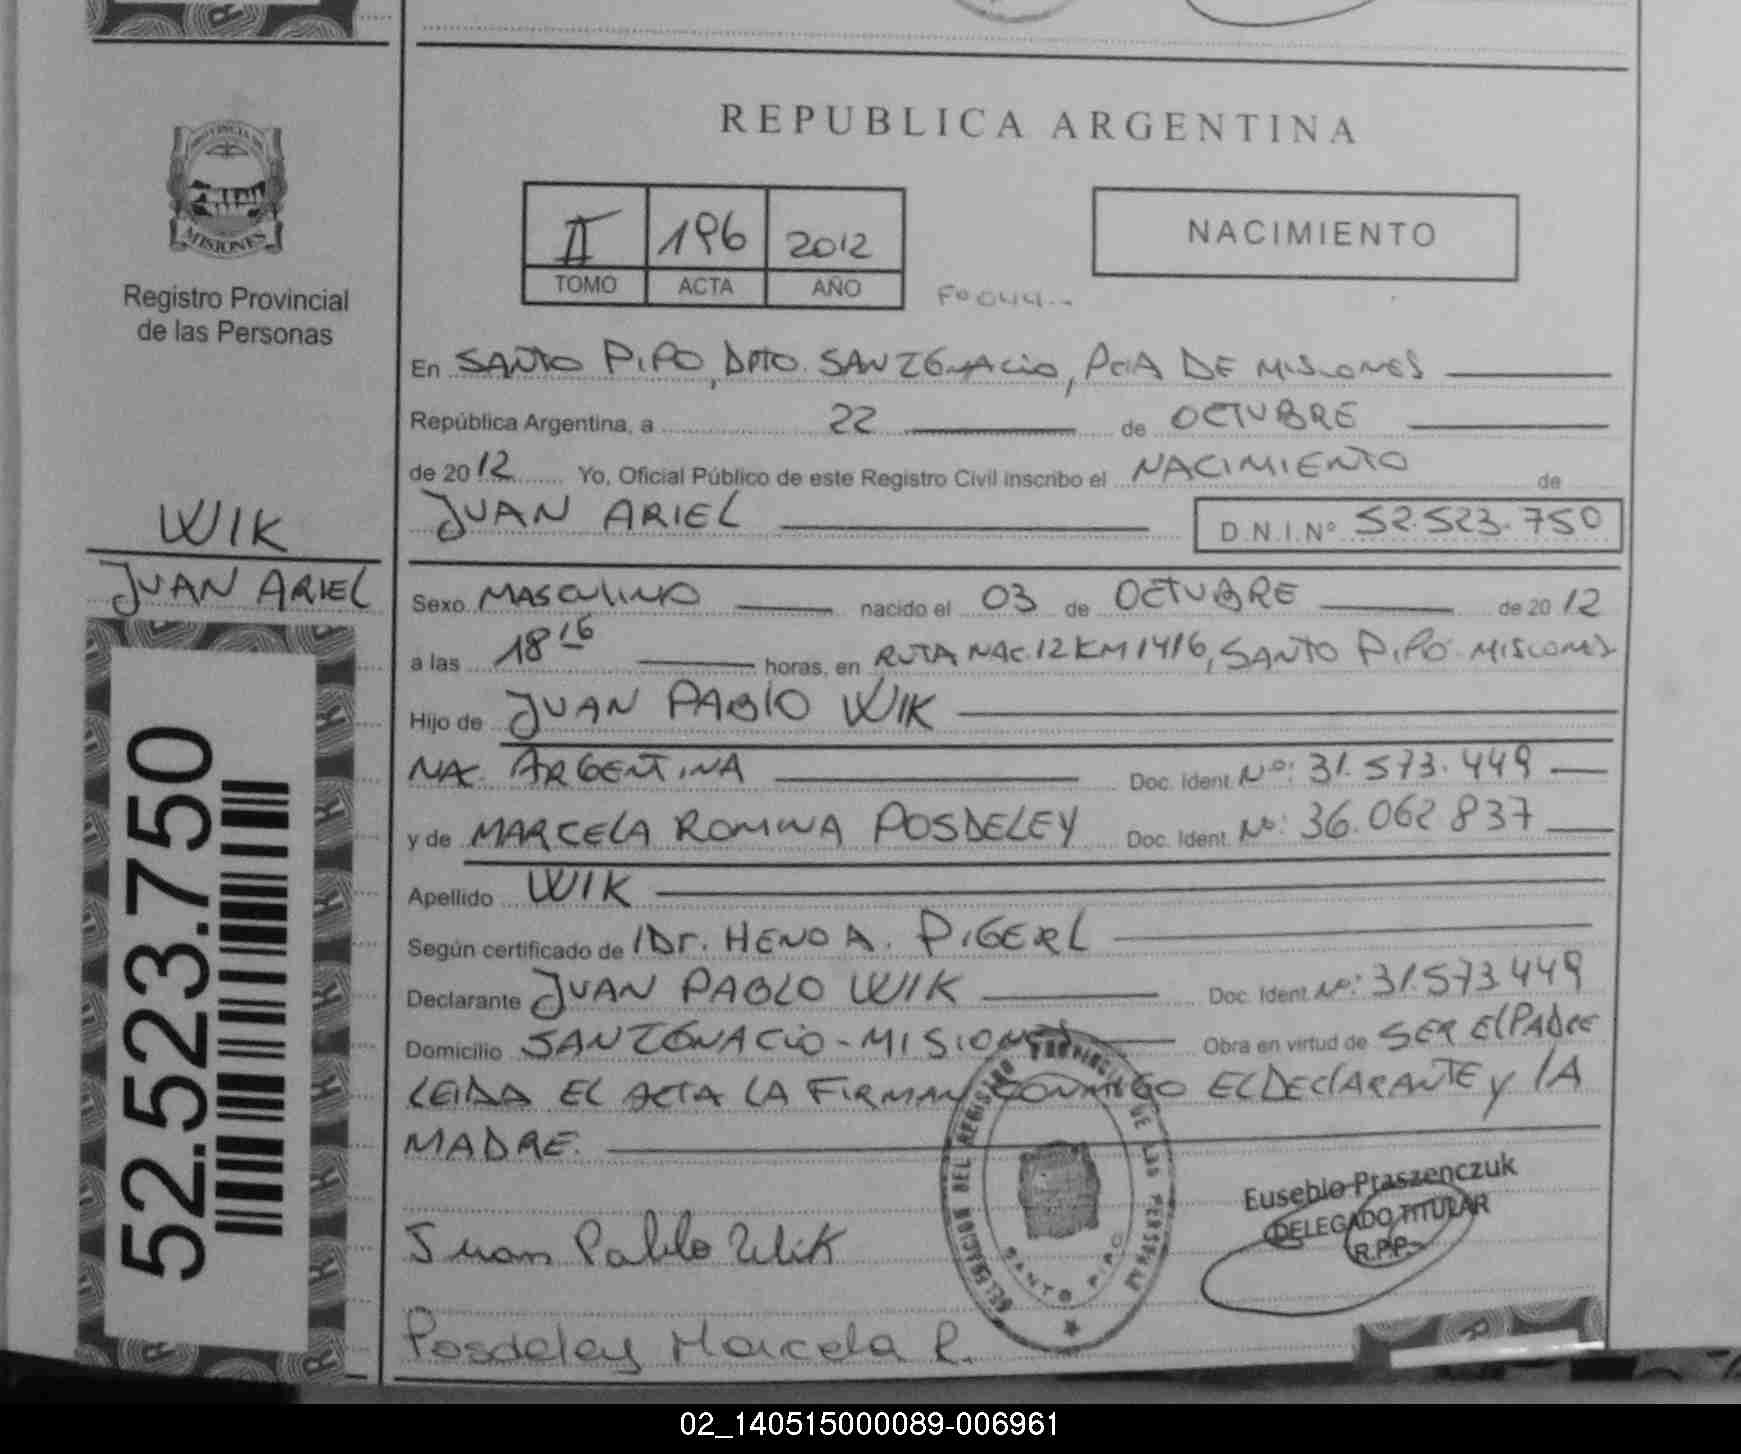 REPUBLICA ARGENTINA
PROVINCIA DE
MISIONES
Registro Provincial
de las Personas
II 196 2012
TOMO ACTA AÑO
Fº 044
NACIMIENTO
En SANTO PIPO, DPTO. SAN IGNACIO, PCIA DE MISIONES
República Argentina, a 22 de OCTUBRE
de 2012 Yo, Oficial Público de este Registro Civil inscribo el NACIMIENTO de
JUAN ARIEL D.N.I.Nº 52.523.750
WIK
JUAN ARIEL
52.523.750
Sexo MASCULINO nacido el 03 de OCTUBRE de 2012
a las 18 16 horas, en RUTA NAC. 12 KM 1416, SANTO PIPO MISIONES
Hijo de JUAN PABLO WIK
NAC. ARGENTINA Doc. Ident. Nº: 31.573.449
y de MARCELA ROMINA POSDELEY Doc. Ident. Nº: 36.062837
Apellido WIK
Según certificado de Dr. HENO A. PIGERL
Declarante JUAN PABLO WIK Doc. Ident. Nº: 31.573.449
Domicilio SAN IGNACIO - MISIONES Obra en virtud de SER EL PADRE
LEIDA EL ACTA LA FIRMAN CONMIGO EL DECLARANTE y LA
MADRE.
DELEGACION DEL REGISTRO PROVINCIAL DE LAS PERSONAS
SANTO PIPO
Eusebio Ptaszenczuk
DELEGADO TITULAR
R.P.P.
Juan Pablo Wik
Posdeley Marcela R.
02_140515000089-006961